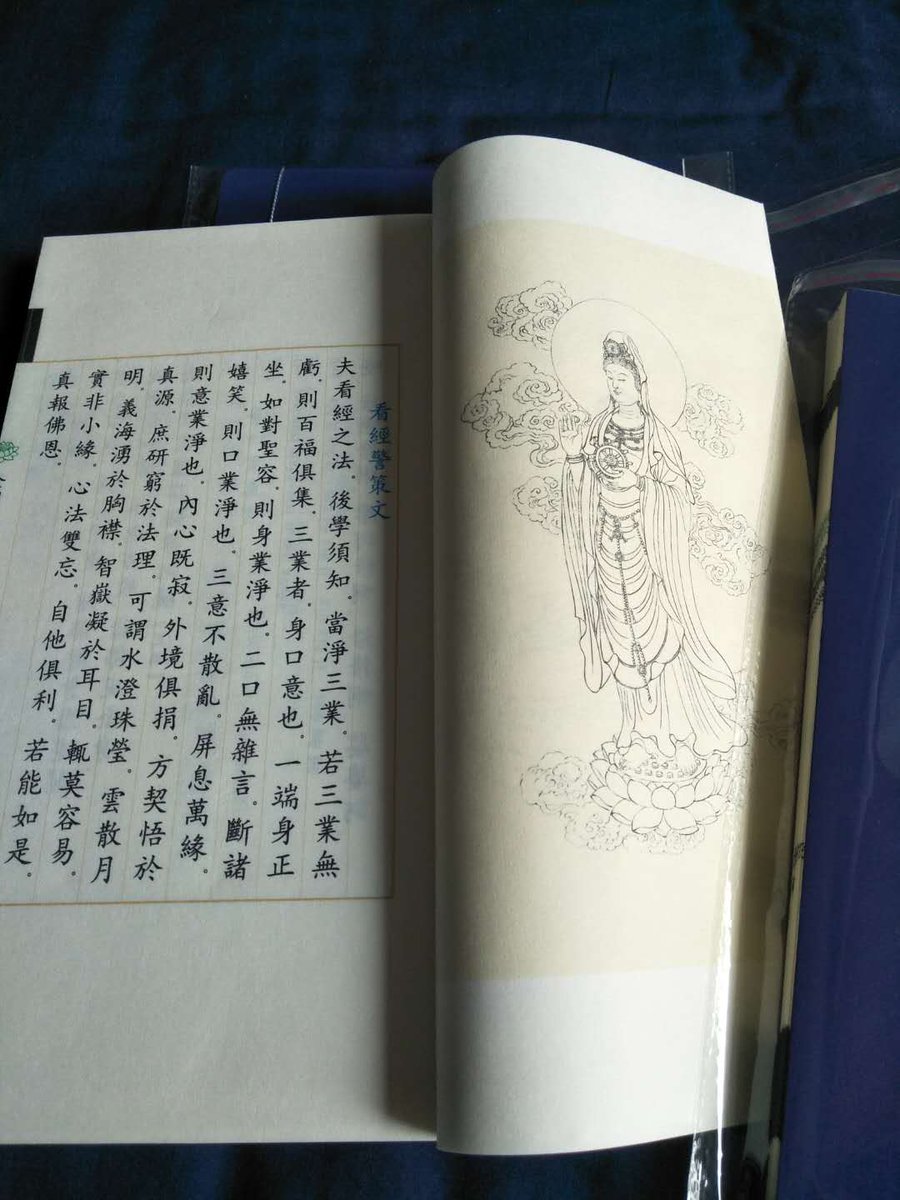 看經警策文
夫看經之法。後學須知。當淨三業。若三業無
虧。則百福俱集。三業者。身口意也。一端身正
坐。如對聖容。則身業淨也。二口無雜言。斷諸
嬉笑。則口業淨也。三意不散亂。屏息萬緣。
則意業淨也。內心既寂。外境俱捐。方契悟於
真源。庶研窮於法理。可謂水澄珠瑩。雲散月
明。義海湧於胸襟。智嶽凝於耳目。輒莫容易。
實非小緣。心法雙忘。自他俱利。若能如是。
真報佛恩。